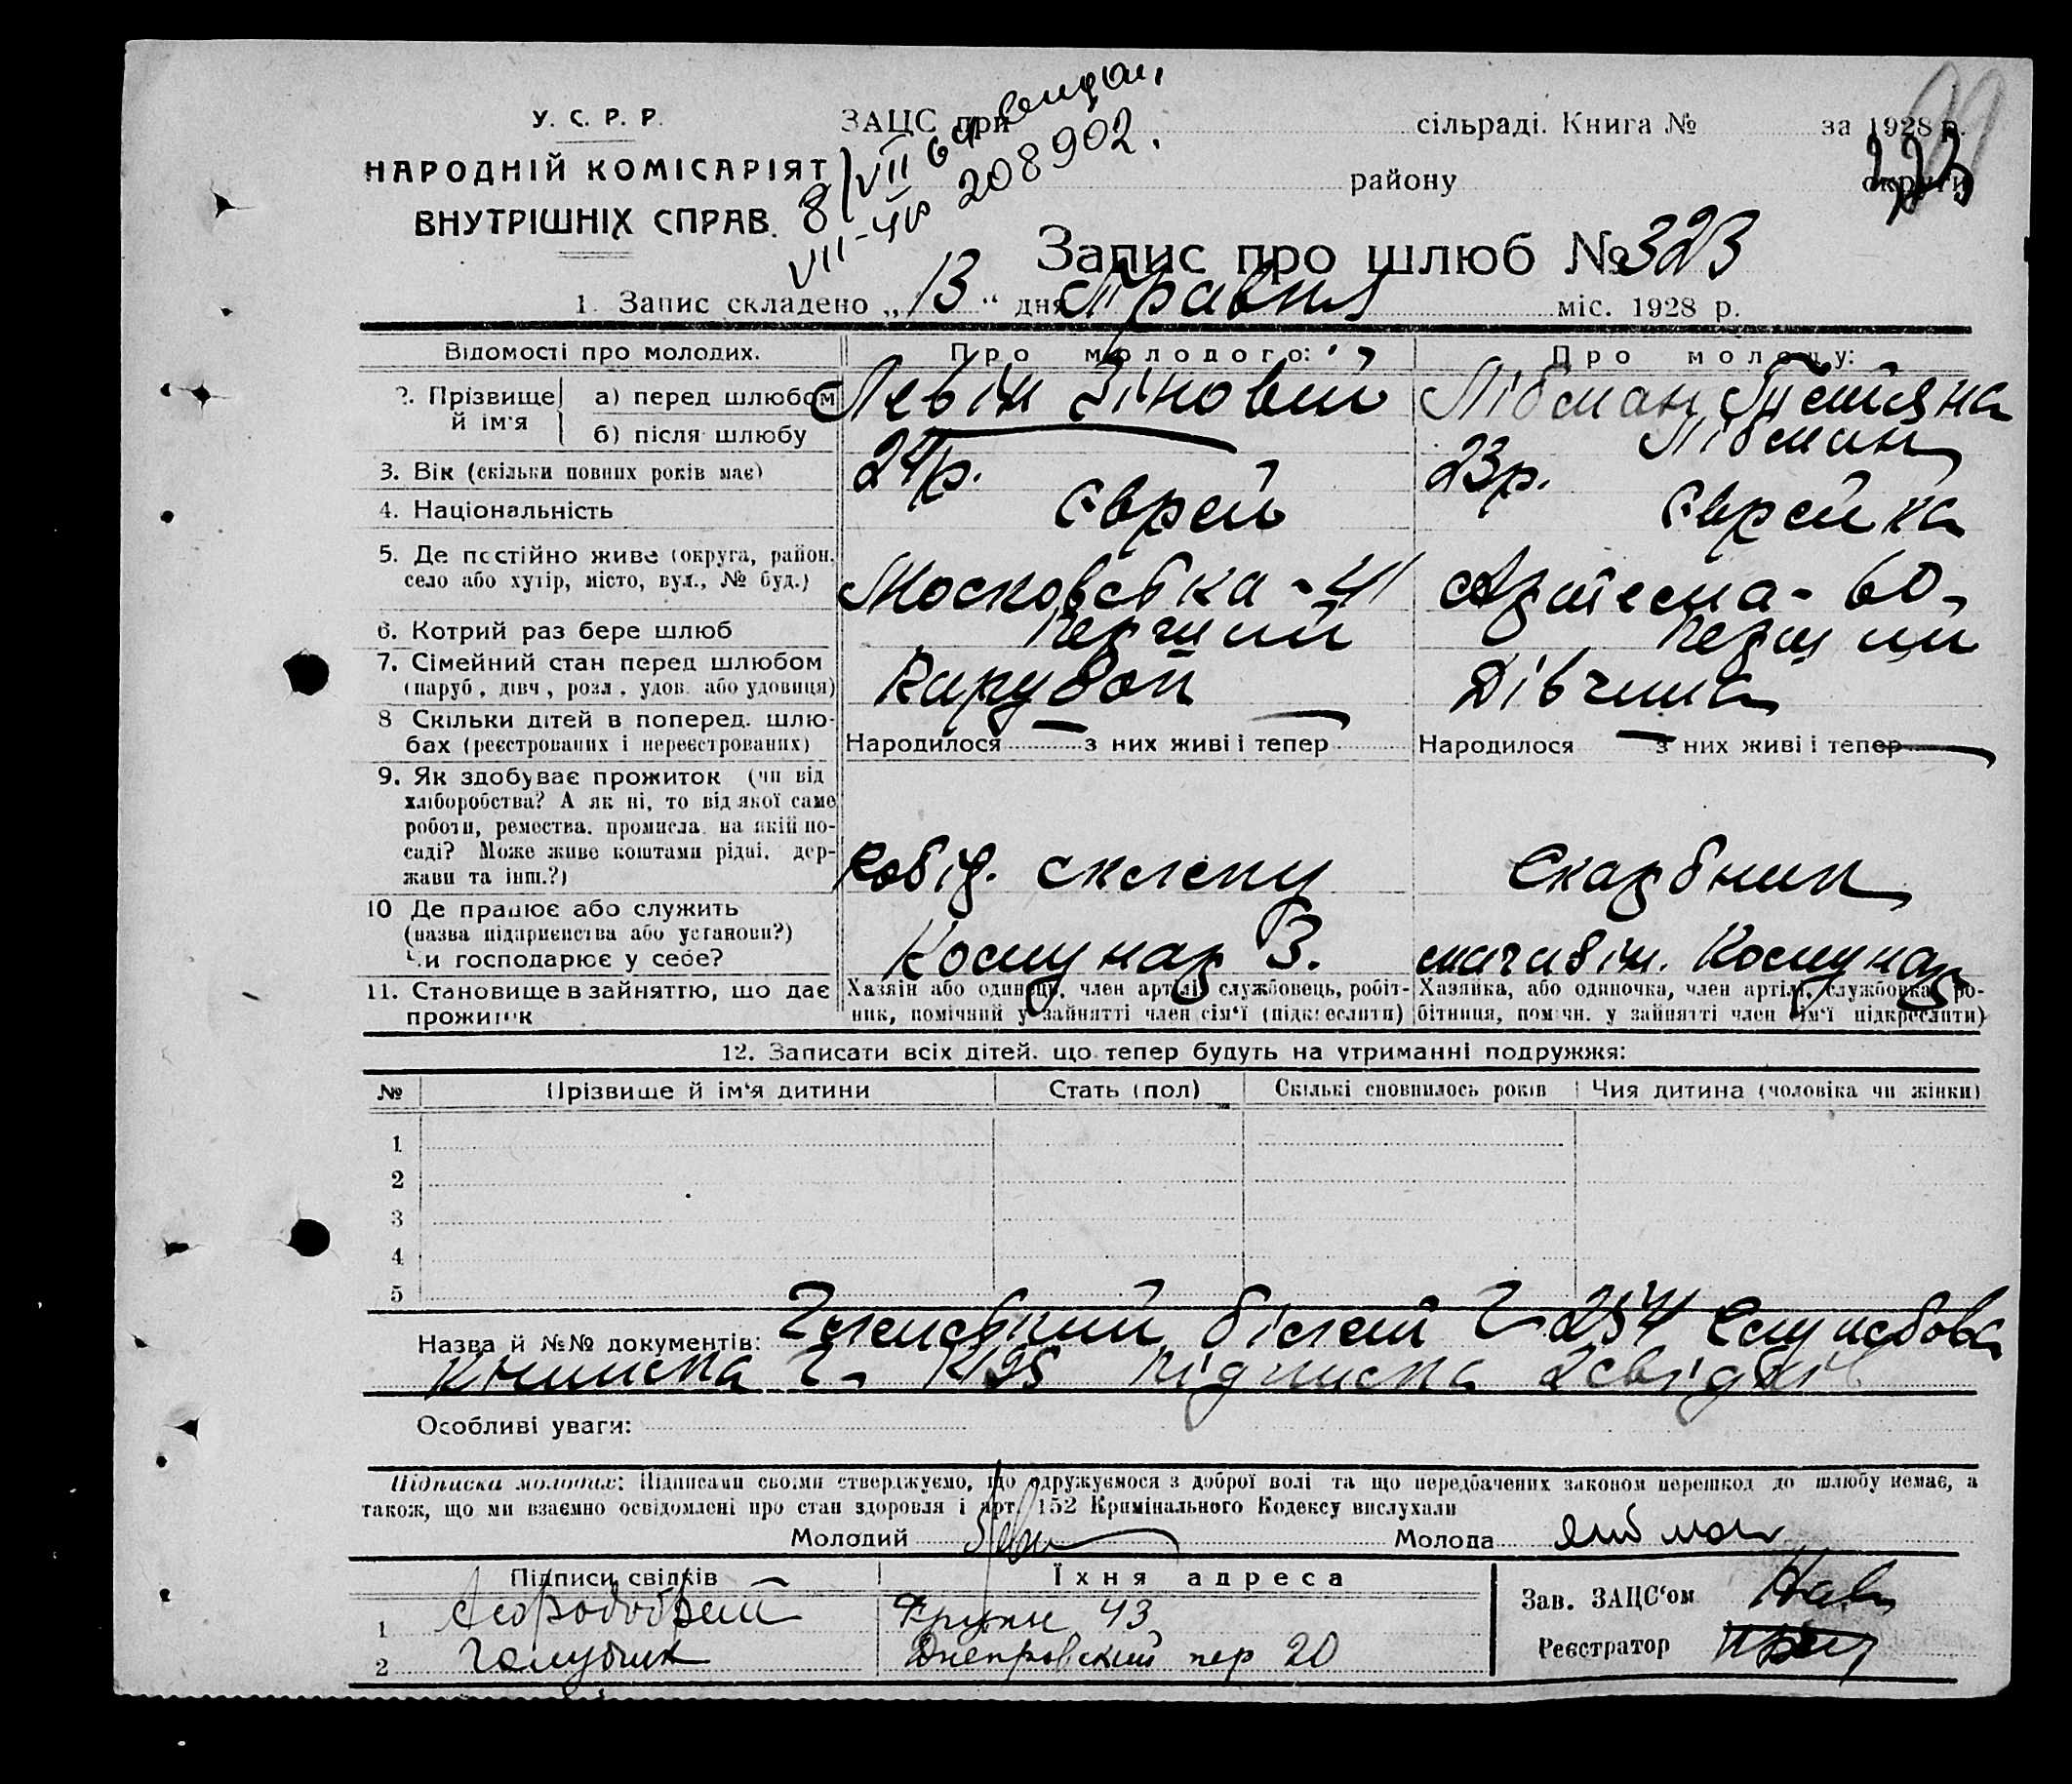 У. С. Р. Р.
ЗАЦС при сільраді. Книга № за 1928 р.
НАРОДНІЙ КОМІСАРІЯТ
району округи
ВНУТРІШНІХ СПРАВ.
8/VII
VII-
208902.
323
Запис про шлюб № 323
1. Запис складено „13" дня Травня міс. 1928 р.
Відомості про молодих. Про молодого: Про молоду:
2. Прізвище й ім'я а) перед шлюбом Левін Зіновій Лібман Тетяна
б) після шлюбу Лібман
3. Вік (скільки повних років має) 24р. 23р.
4. Національність Єврей Єврейка
5. Де постійно живе (округа, район, село або хутір, місто, вул., № буд.) Московська - 41 Артема - 60
6. Котрий раз бере шлюб Перший Перший
7. Сімейний стан перед шлюбом Парубок Дівчина
(паруб., дівч., розл., удов. або удовиця)
8 Скільки дітей в поперед. шлюбах (реєстрованих і нереєстрованих) Народилося — з них живі і тепер — Народилося — з них живі і тепер —
9. Як здобуває прожиток (чи від
хліборобства? А як ні, то від якої саме
роботи, ремества, промисла, на якій по-
саді? Може живе коштами рідні, дер-
жави та інш.?) Скарбник
10 Де працює або служить
(назва підприємства або установи?)
Чи господарює у себе? Комунар З. Комунар
11. Становище в зайняттю, що дає прожиток
Хазяін або одинець, член артілі, службовець, робіт-
ник, помічний у зайнятті член сім'ї (підкреслити)
Хазяйка, або одиночка, член артілі, службовка, ро-
бітниця, помічн. у зайнятті член сім'ї підкреслити)
12. Записати всіх дітей, що тепер будуть на утриманні подружжя:
№ Прізвище й ім'я дитини Стать (пол) Скількі сповнилось років Чия дитина (чоловіка чи жінки)
1
2
3
4
5
Назва й №№ документів: Членський білет Ч. 254 Службова
книжка Ч. Підписка 2 свідків
Особливі уваги:
Підписка молодих: Підписами своїми стверджуємо, що одружуємося з доброї волі та що передбачених законом перешкод до шлюбу немає, а
також, що ми взаємно освідомлені про стан здоровля і арт. 152 Кримінального Кодексу вислухали
Молодий Молода Либман
Підписи свідків Їхня адреса
Зав. ЗАЦС'ом
1 43
Реєстратор
2 Голубчик Днепровский пер 20